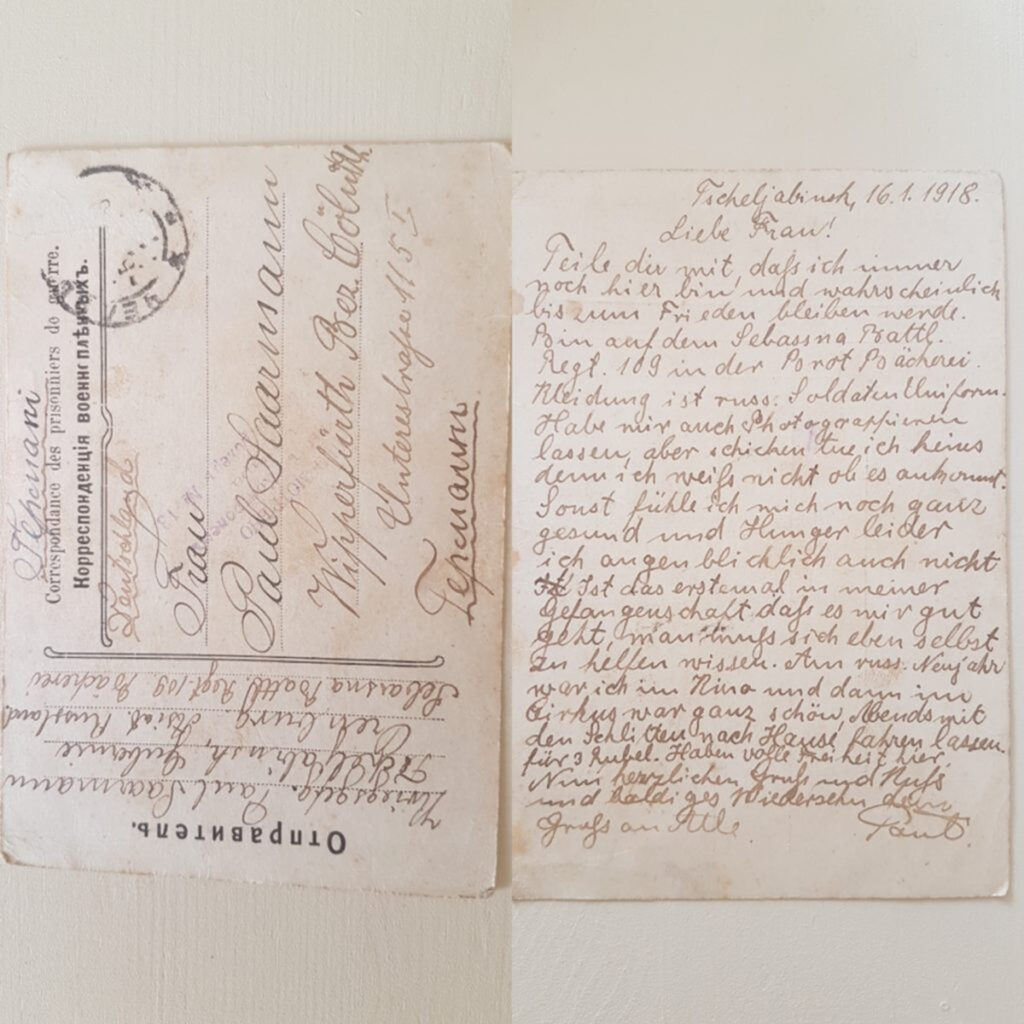 Германія
Correspondance des prisonniers de guerre.
Корреспонденція военноплѣнныхъ.
Deutschlande
Frau
Paul Saarmann
Wipperfürth Bez. Cöln
Unterestrasse 115 I
Германію
Отправитель.
Kriegsgefg. Paul Saarmann
Tscheljabinsk, Gubernie
Orenburg Asiat. Russland
Sebasna Battl. Regt. 109 Bächerei
Tscheljabinsk, 16.1.1918.
Liebe Frau!
Teile dir mit, dafs ich immer
noch hier bin und wahrscheinlich
bis zum Frieden bleiben werde.
Bin auf dem Sebassna Battl.
Regt. 109 in der Porot Bächerei.
Kleidung ist russ. Soldaten Uniform.
Habe mir auch Photograppieren
lassen, aber schicken tue ich keins
denn ich weifs nicht ob es ankommt.
Sonst fühle ich mich noch ganz
gesund und Hunger leider
ich augen blicklich auch nicht
Ist das erstemal in meiner
Gefangenschaft dafs es mir gut
geht, man mufs sich eben selbst
zu helfen wissen. Am russ. Neujahr
war ich im Kino und dann im
Cirkus war ganz schön, Abends mit
den Schlitten nach Hause fahren lassen.
für 3 Rubel. Haben volle Freiheit hier.
Nun herzlichen Grufs und Kufs
und baldiges Wiedersehn dein
Grufs an Alle Paul.